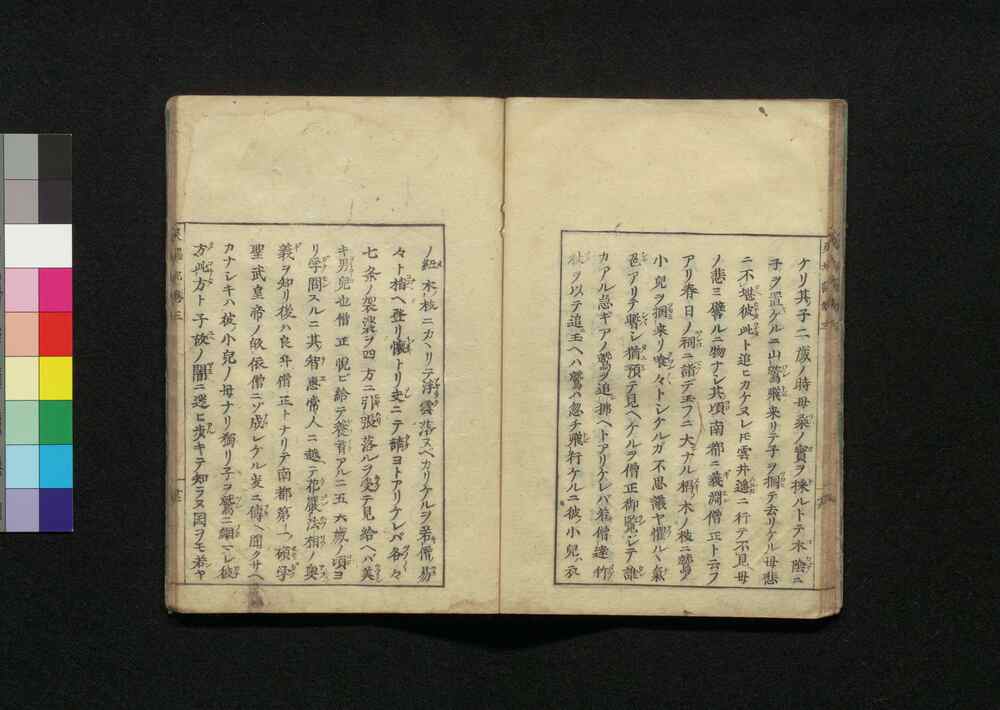 ケリ其子二歳ノ時母桑ノ實ヲ採ルトテ木陰ニ
子ヲ置ケルニ山鷲飛来リテ子ヲ掴テ去リケル母悲
ニ不堪彼此ト追ヒカケヌレ𪜈雲井遥ニ行テ不見母
ノ悲ミ譬ルニ物ナシ其頃南都ニ義淵僧正ト云フ
アリ春日ノ祠ニ詣デ玉フニ大ナル椙木ノ枝ニ鷲
小兒ヲ掴来リ喰々トシケルガ不思議ヤ懼ルヽ氣
色アリテ暫シ猶預テ見ヘケルヲ僧正御覧シテ誰
カアル急ギアノ鷲ヲ追拂ヘトアリケレバ若僧達竹
杖ヲ以テ追玉ヘハ鷲ハ忽チ飛行ケルニ彼小兒ハ衣
ノ紐木ノ枝ニカヽリテ浮雲落ヌヘカリケルヲ若僧易
々ト梢ヘ登リ懐トリ爰ニテ請ヨトアリケレバ各々
七条ノ袈裟ヲ四方ニ引張落ルヲ受テ見給ヘバ美
キ男兒也僧正悦ビ給テ養育アルニ五六歳ノ頃ヨ
リ学問スルニ其智恵常人ニ越テ花嚴法相ノ奥
義ヲ知リ後ハ良弁僧正トナリテ南都第一ノ碩学
聖武皇帝ノ皈依僧ニゾ成レケル爰ニ傳ヘ聞クサヘ
カナシキハ彼小兒ノ母ナリ獨リ子ヲ鷲ニ掴マレ彼
方此方ト子故ノ闇ニ迷ヒ歩キテ知ラヌ国ヲモ若ヤ